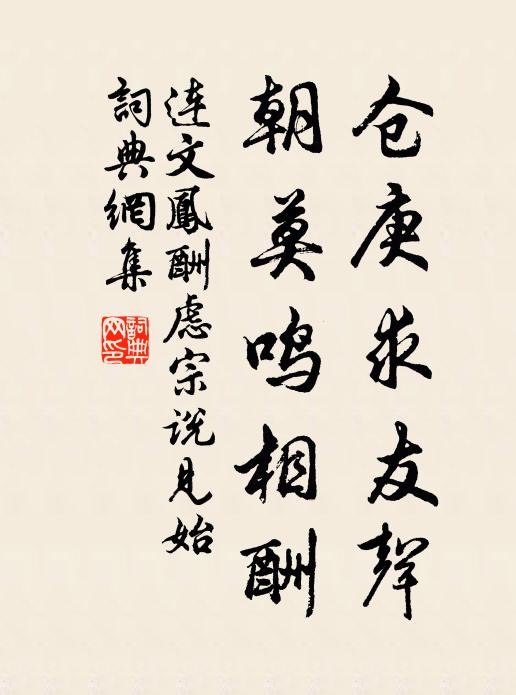 仓庚求友聲
朝莫鸣相酬
连文鳳酬虑宗说见始
詞典網集
詞典網印